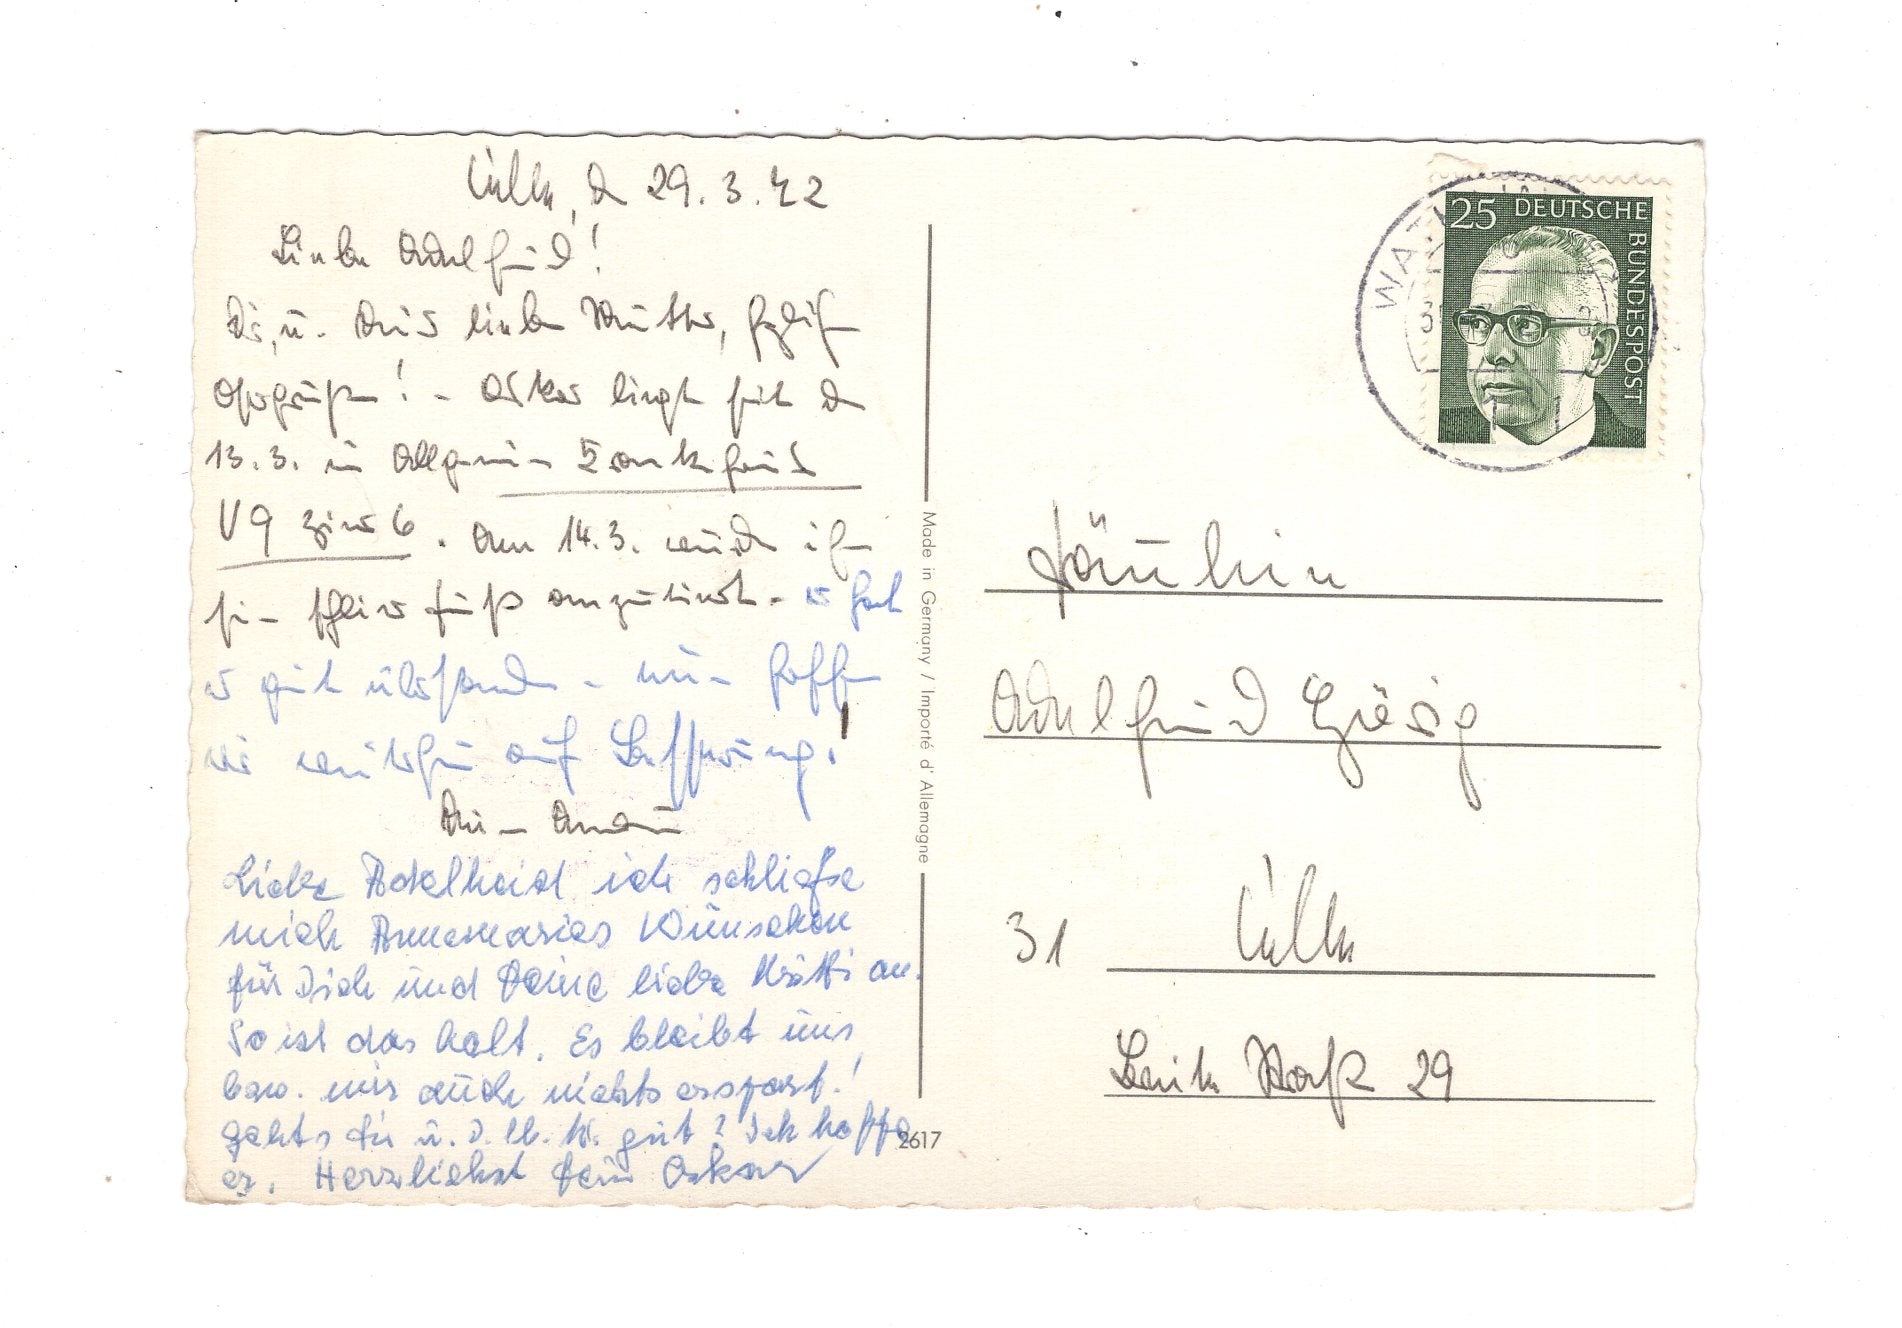 Celle, d 29.3.72
Liebe Adelheid!
Dir u. Deiner lieben Mutter, herzliche
Ostergrüße! - Oskar liegt seit dem
13.3. im Allgemein Krankenhaus
V9 Zimer 6. Am 14.3. wurde ihm
sein  amputiert. er hat
es gut überstanden - nun hoffen
wir weiterhin auf Besserung.
Deine
Liebe Adelheid ich schließe
mich Annemaries Wünschen
für Dich und Deine liebe Mutti an.
So ist das halt. Es bleibt uns
bzw. mir auch nichts erspart!
Gehts dir u. D. lb. M. gut? Ich hoffe
es. Herzlichst Dein Oskar
Made in Germany / Importé d'Allemagne
2617
25 DEUTSCHE BUNDESPOST
Fräulein
Adelheid
31 Celle
29